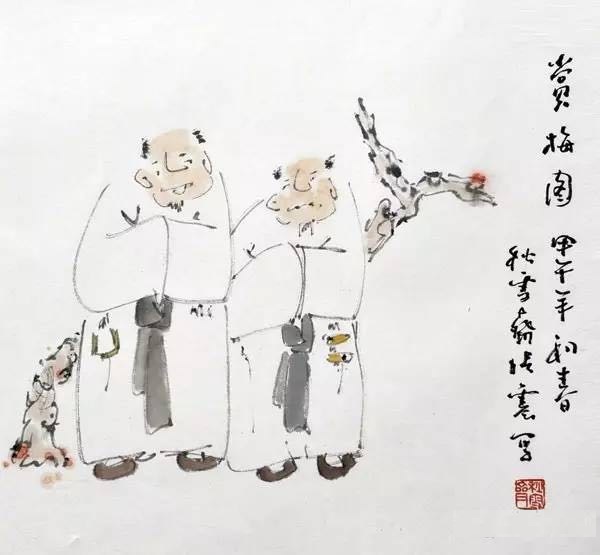 赏梅图 甲午年初春
秋雪斋张震写